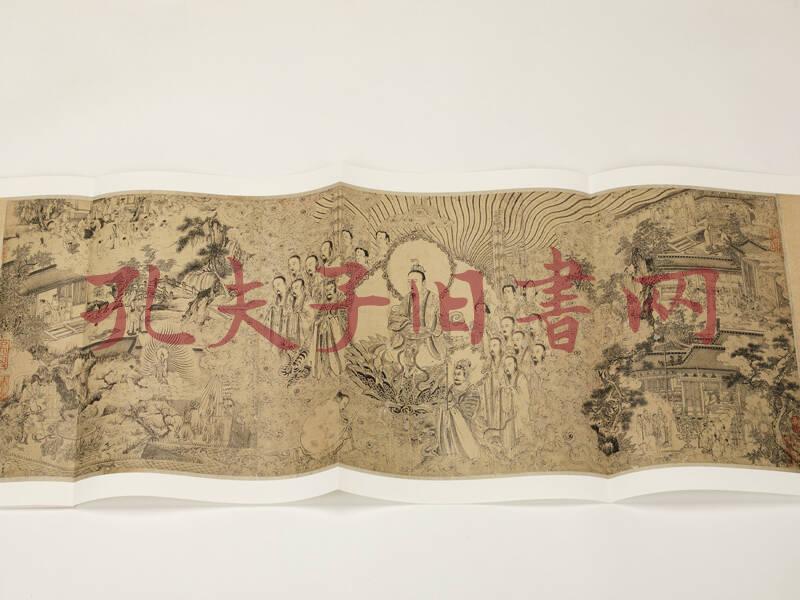 孔夫子旧书网